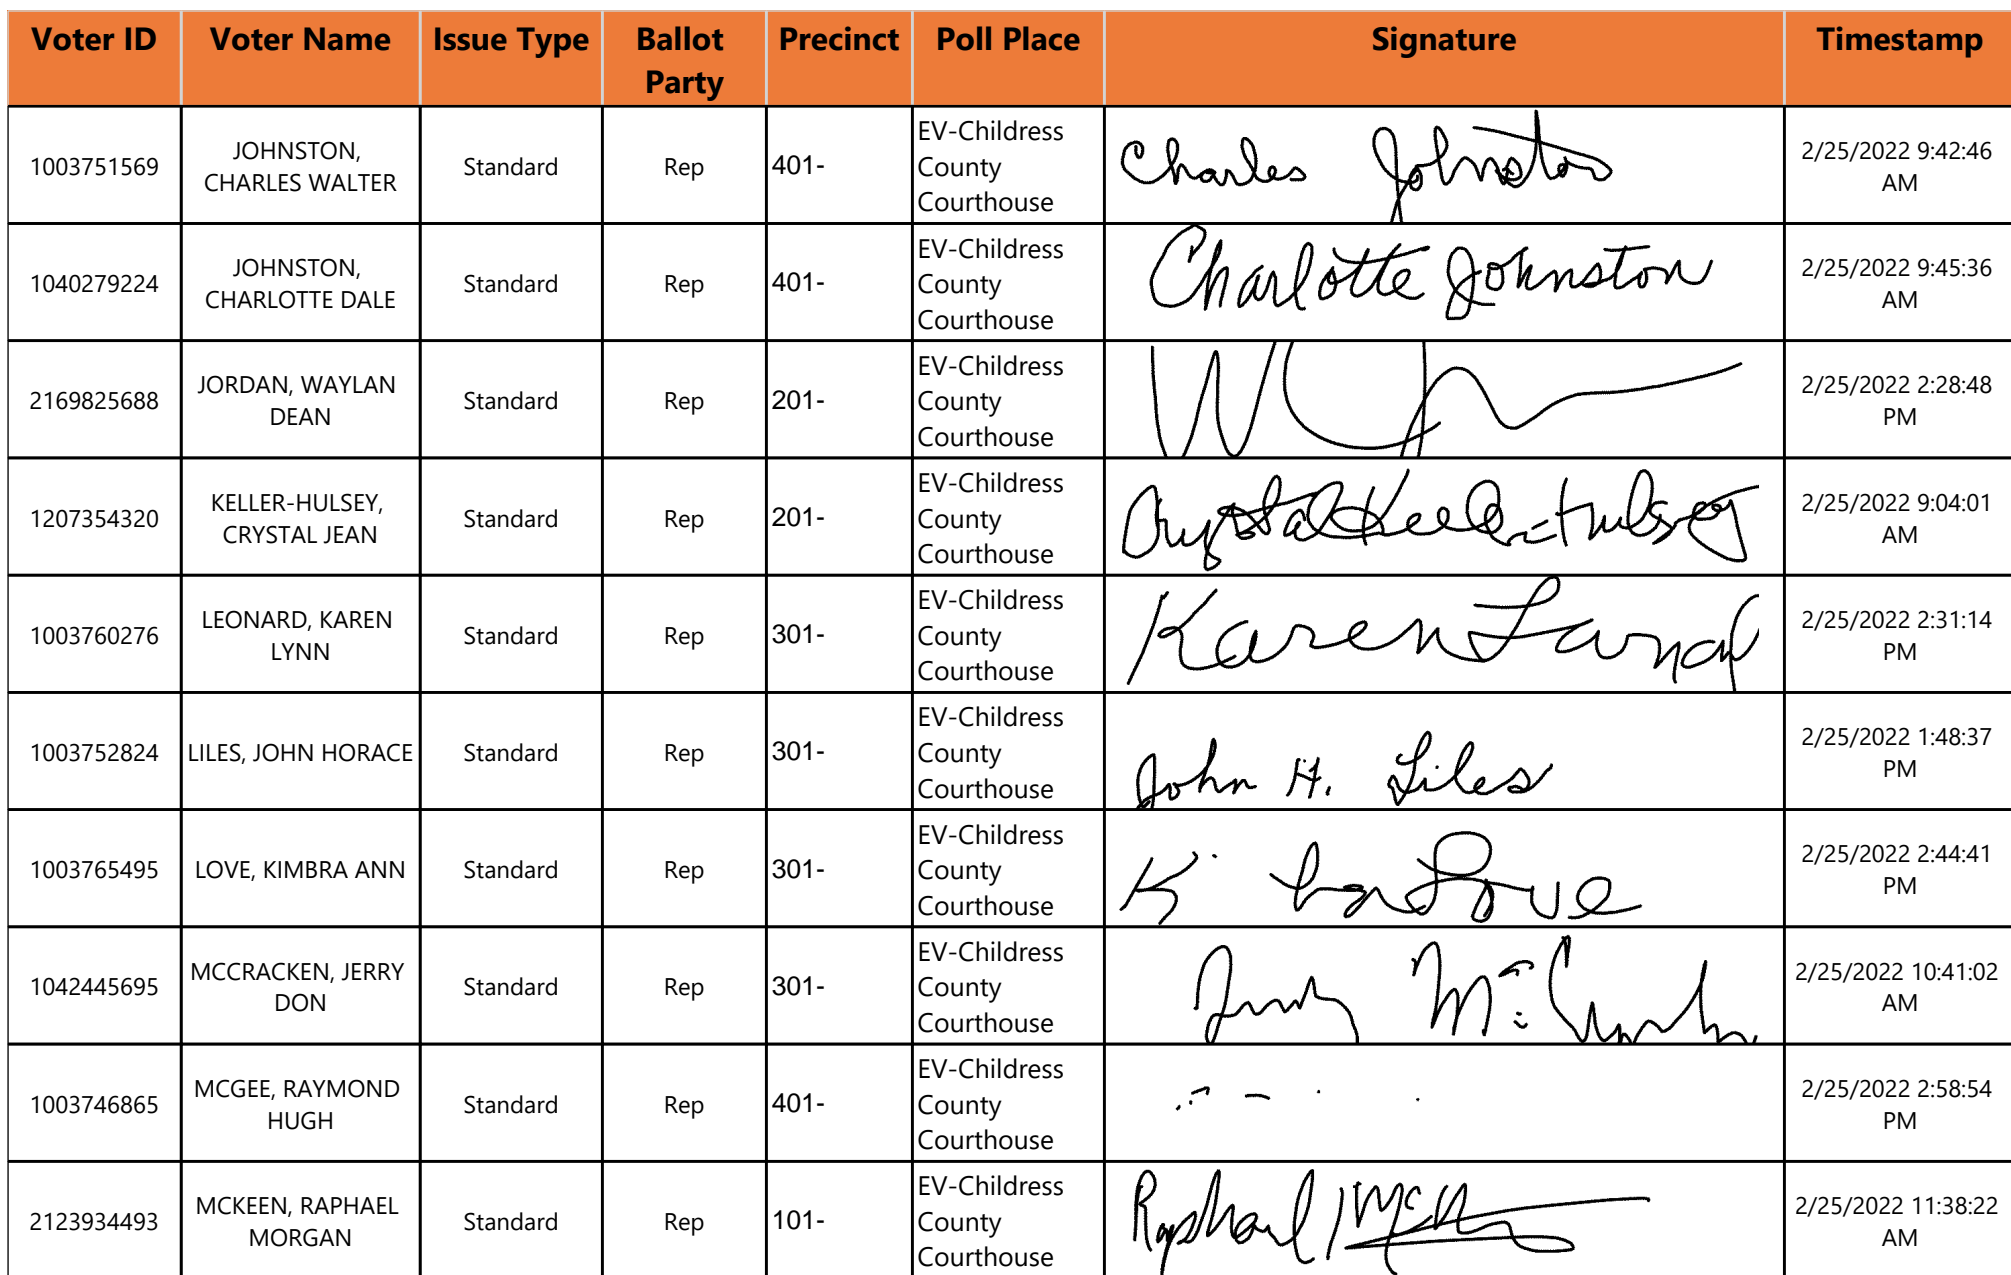 Voter ID Voter Name Issue Type Ballot Party Precinct Poll Place Signature Timestamp
1003751569 JOHNSTON, CHARLES WALTER Standard Rep 401- EV-Childress County Courthouse Charles Johnston 2/25/2022 9:42:46 AM
1040279224 JOHNSTON, CHARLOTTE DALE Standard Rep 401- EV-Childress County Courthouse Charlotte Johnston 2/25/2022 9:45:36 AM
2169825688 JORDAN, WAYLAN DEAN Standard Rep 201- EV-Childress County Courthouse 2/25/2022 2:28:48 PM
1207354320 KELLER-HULSEY, CRYSTAL JEAN Standard Rep 201- EV-Childress County Courthouse Crystal Keller-Hulsey 2/25/2022 9:04:01 AM
1003760276 LEONARD, KAREN LYNN Standard Rep 301- EV-Childress County Courthouse Karen 2/25/2022 2:31:14 PM
1003752824 LILES, JOHN HORACE Standard Rep 301- EV-Childress County Courthouse John H. Liles 2/25/2022 1:48:37 PM
1003765495 LOVE, KIMBRA ANN Standard Rep 301- EV-Childress County Courthouse K Love 2/25/2022 2:44:41 PM
1042445695 MCCRACKEN, JERRY DON Standard Rep 301- EV-Childress County Courthouse 2/25/2022 10:41:02 AM
1003746865 MCGEE, RAYMOND HUGH Standard Rep 401- EV-Childress County Courthouse 2/25/2022 2:58:54 PM
2123934493 MCKEEN, RAPHAEL MORGAN Standard Rep 101- EV-Childress County Courthouse Raphael 2/25/2022 11:38:22 AM